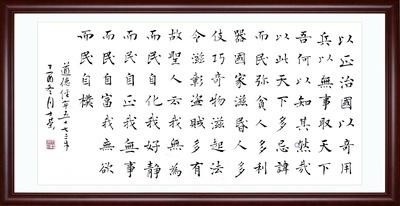 以正治國以奇用
兵以無事取天下
吾何以知其然哉
以此天下多忌諱
而民弥貧人多利
器國家滋昬人多
伎巧奇物滋起法
令滋彰盜賊多有
故聖人云我無為
而民自化我好靜
而民自正我無事
而民自富我無欲
而民自樸
道德經第五十七章
丁酉冬月